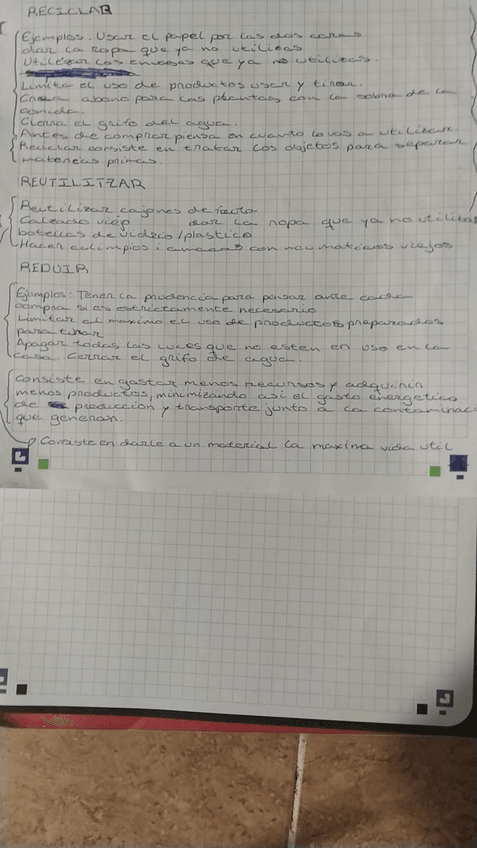 RECICLAR
Ejemplos: Usar el papel por las dos caras
dar la ropa que ya no utilices
Utilizar los envases que ya no utilices.
Limita el uso de productos usar y tirar.
Como abono para las plantas con la sobra de la
comida.
Cierra el grifo del agua.
Antes de comprar piensa en cuanto lo vas a utilizar.
Reciclar consiste en tratar los objetos para separar
materias primas.
REUTILITZAR
Reutilizar cajones de fruta
Calzado viejo dar la ropa que ya no utilices
botellas de vidrio/plastico
Hacer columpios con neumaticos viejos
REDUIR
Ejemplos: Tener la prudencia para pensar ante cada
compra si es estrictamente necesario
Limitar al maximo el uso de productos preparados
para tirar
Apagar todas las luces que no esten en uso en la
casa. Cerrar el grifo de agua.
Consiste en gastar menos recursos y adquirir
menos productos, minimizando asi el gasto energetico
de produccion y transporte junto a la contaminac
que generan.
Consiste en darle a un material la maxima vida util